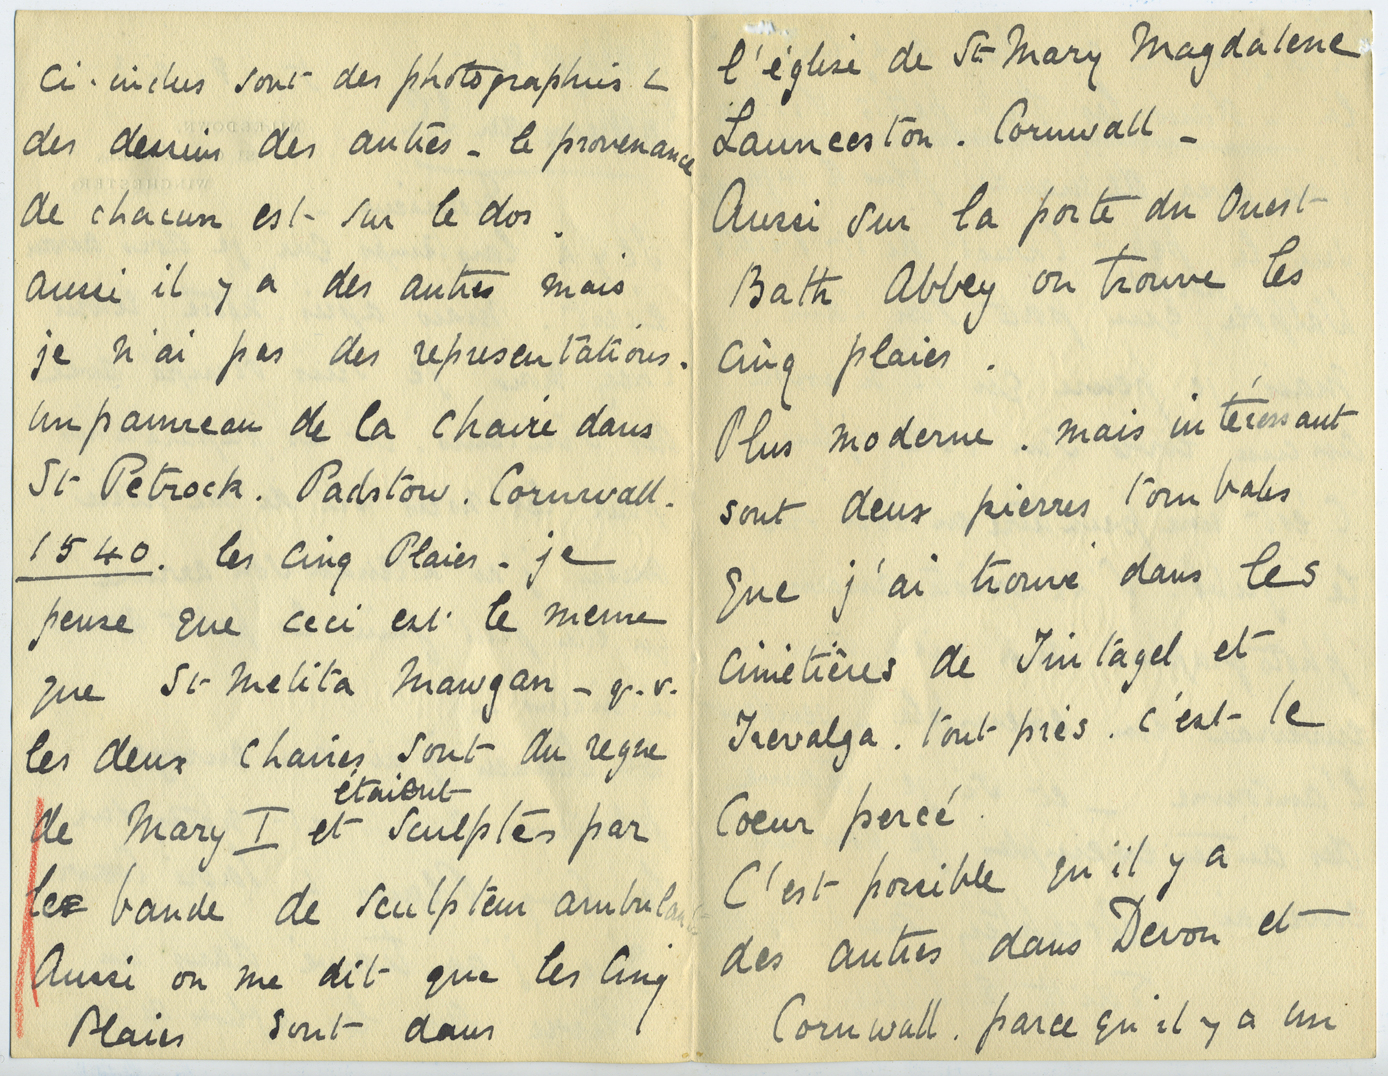 Ci-inclus sont des photographies &
des dessins des autres - le provenance
de chacun est sur le dos.
aussi il y a des autres mais
je n'ai pas des representations.
un panneau de la chaire dans
St Petrock. Padstow. Cornwall.
1540. les cinq Plaies - je
pense que ceci est le meme
que St Melita Mawgan - q.v.
les deux chaires sont du regne
étaient
de Mary I et sculptés par
le bande de sculpteur ambulant
Aussi on me dit que les Cinq
Plaies sont dans
l'église de St Mary Magdalene
Launceston. Cornwall -
Aussi sur la porte du Ouest
Bath Abbey on trouve les
cinq plaies.
Plus moderne. mais intéressant
sont deux pierres tombales
que j'ai trouvé dans les
cimetières de Tintagel et
Trevalga. tout près. c'est le
Coeur percé.
C'est possible qu'il y a
des autres dans Devon et
Cornwall. parce qu'il y a un